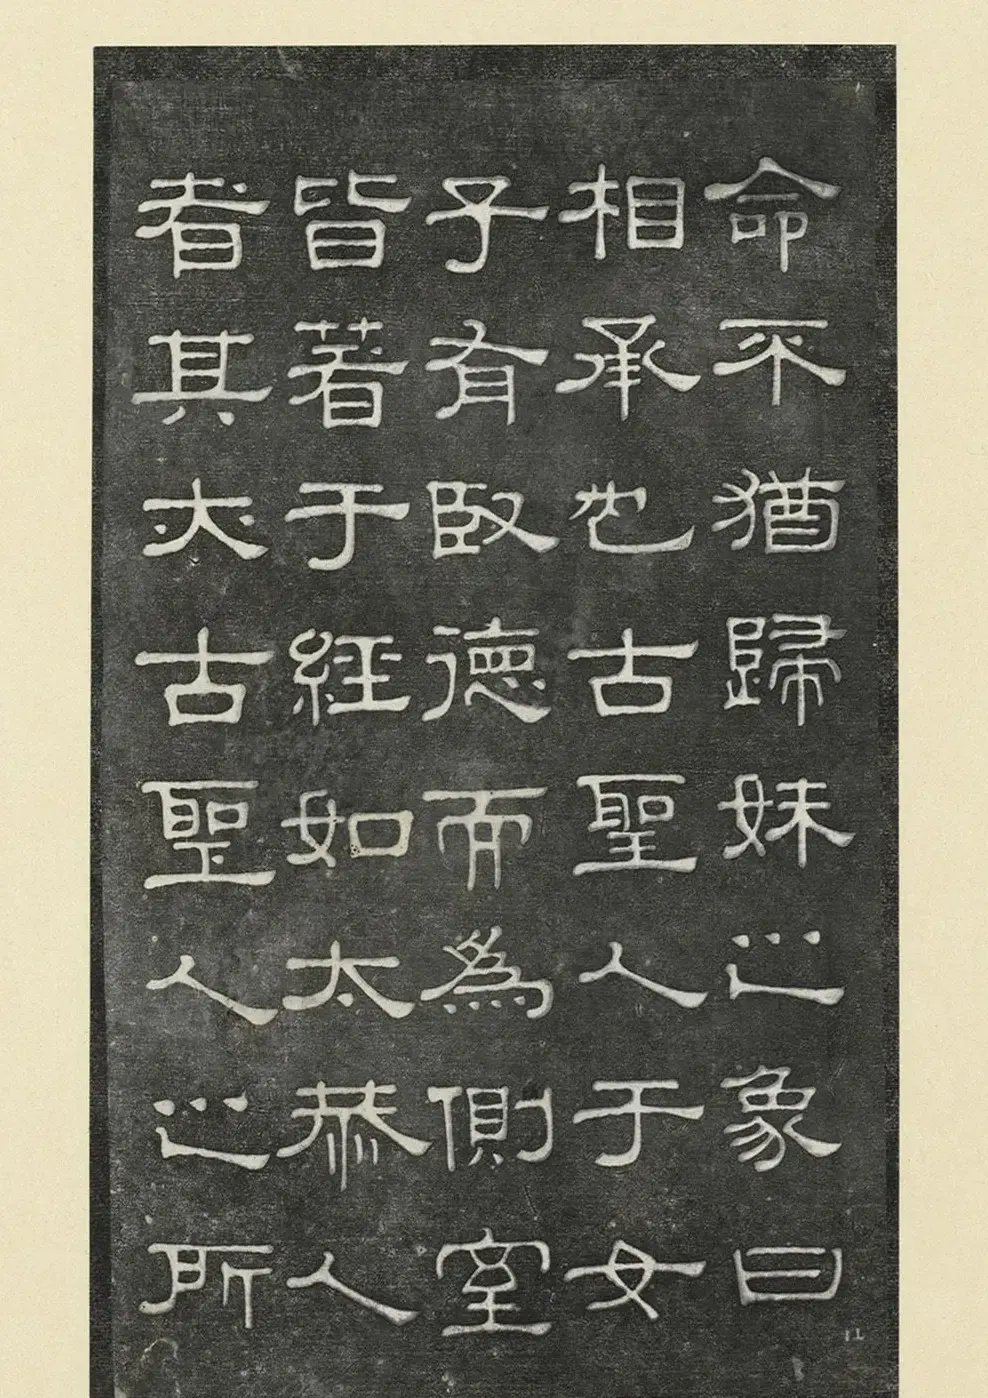 命不猶歸妹之象曰
相承也古聖人于女
子有臤德而為側室
皆著于經如太恭人
者其亦古聖人之所